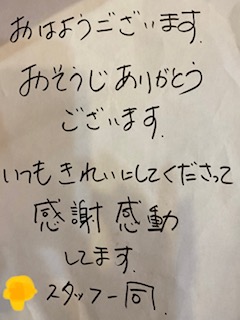 おはようございます.
おそうじ ありがとう
ございます.
いつも きれいにしてくださって
感謝 感動
してます.
スタッフ一同.